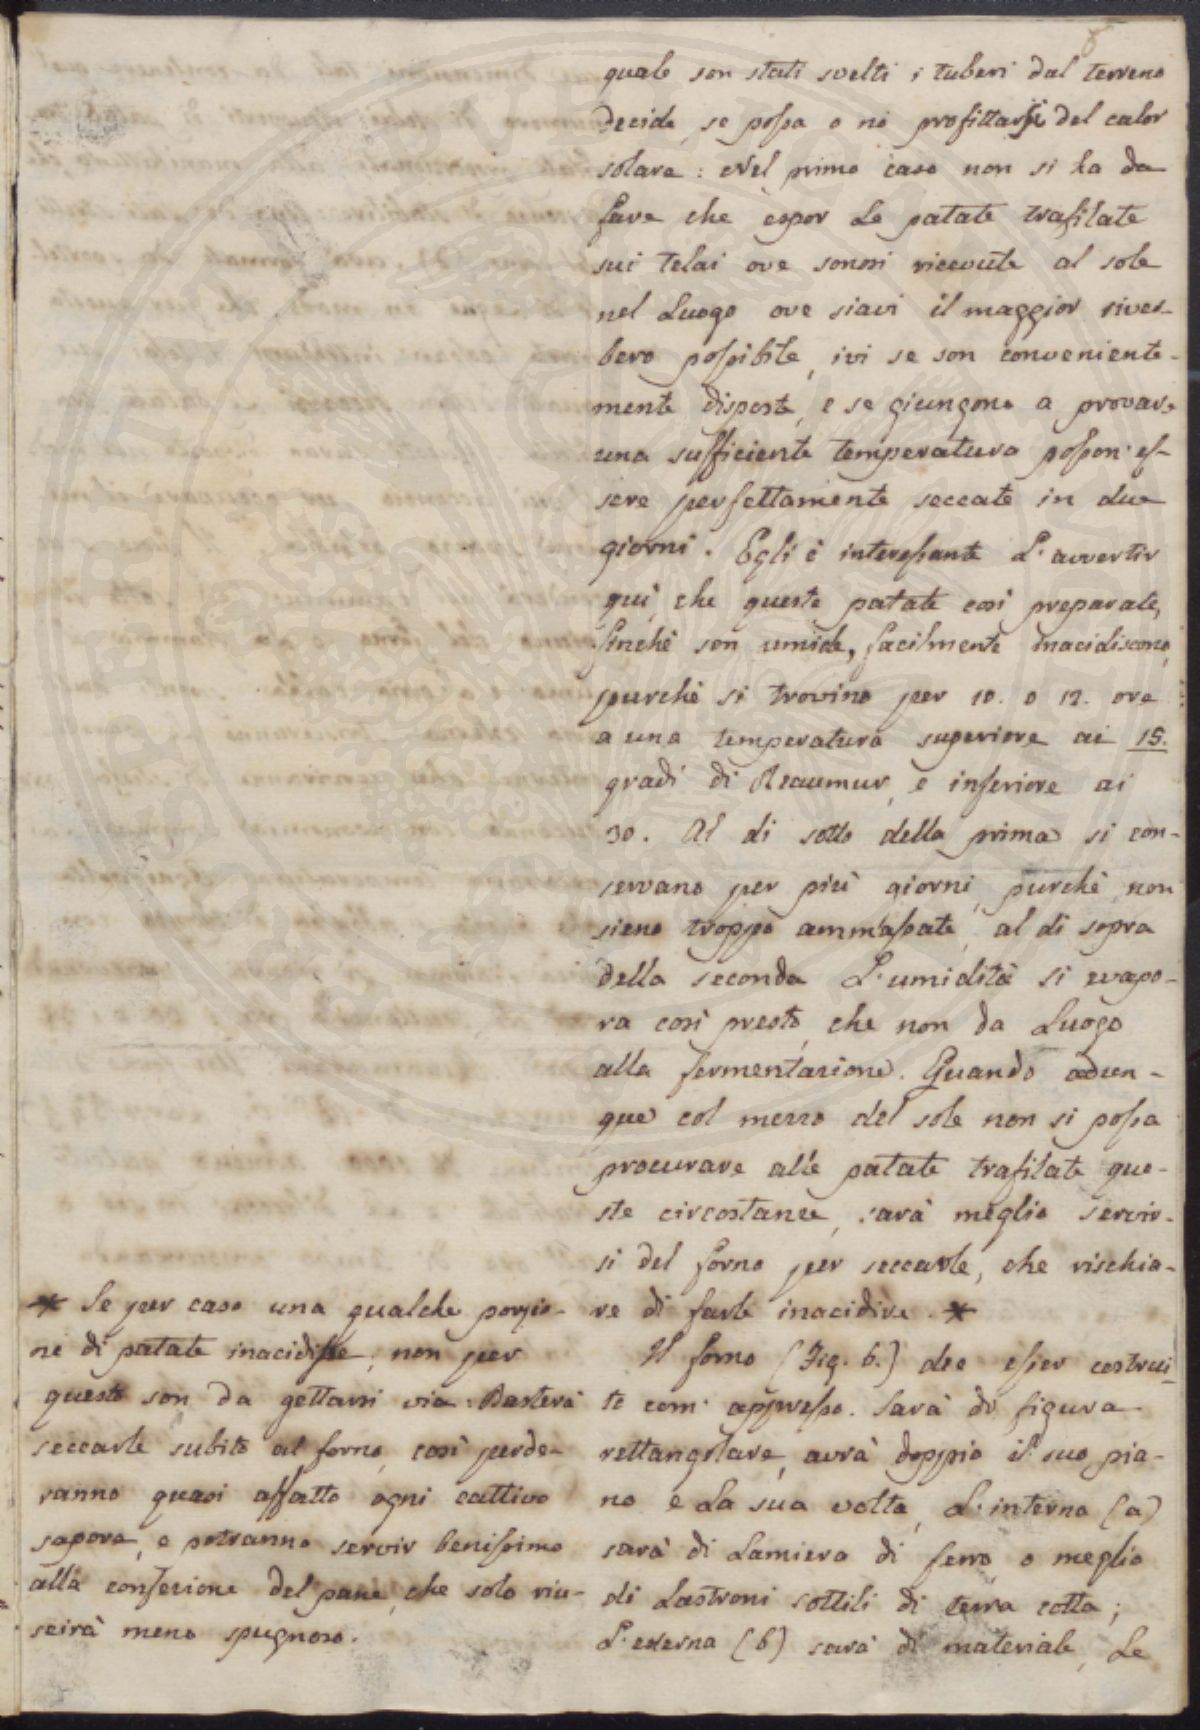 quale son stati svelti i tuberi dal terreno
decide, se possa o nò profittarsi del calor
solare: Nel primo caso non si ha da
fare che espor le patate trafilate
sui telai ove sonosi ricevute al sole
nel Luogo ove siavi il maggior river-
bero possibile, ivi se son conveniente-
mente disposte, e se giungono a provare
una sufficiente temperatura posson' es-
sere perfettamente seccate in due
giorni. Egli è interessante l'avvertir
quì, che queste patate così preparate,
finchè son umide, facilmente inacidiscono,
purchè si trovino per 10. o 12. ore
a una temperatura superiore ai 15.
gradi di Reaumur, e inferiore ai
30. Al di sotto della prima si con-
servano per più giorni, purchè non
sieno troppo ammassate, al di sopra
della seconda L'umidità si evapo-
ra così presto, che non da Luogo
alla fermentazione. Quando adun-
que col mezzo del sole non si possa
procurare alle patate trafilate que-
ste circostanze, sarà meglio servir-
si del forno per seccarle, che rischia-
re di farle inacidire. *
Il forno (Fig. 6.) dee esser costrui-
to com' appresso. Sarà di figura
rettangolare, avrà doppio il suo pia-
no e La sua volta, L'interna (a)
sarà di Lamiera di ferro, o meglio
di Lastroni sottili di terra cotta;
L'esterna (b) sarà di materiale, Le
* Se per caso una qualche porzio-
ne di patate inacidisse, non per
questo son da gettarsi via: Basterà
seccarle subito al forno, così perde-
ranno quasi affatto ogni cattivo
sapore, e potranno servir benissimo
alla confezione del pane, che solo riu-
scirà meno spugnoso.